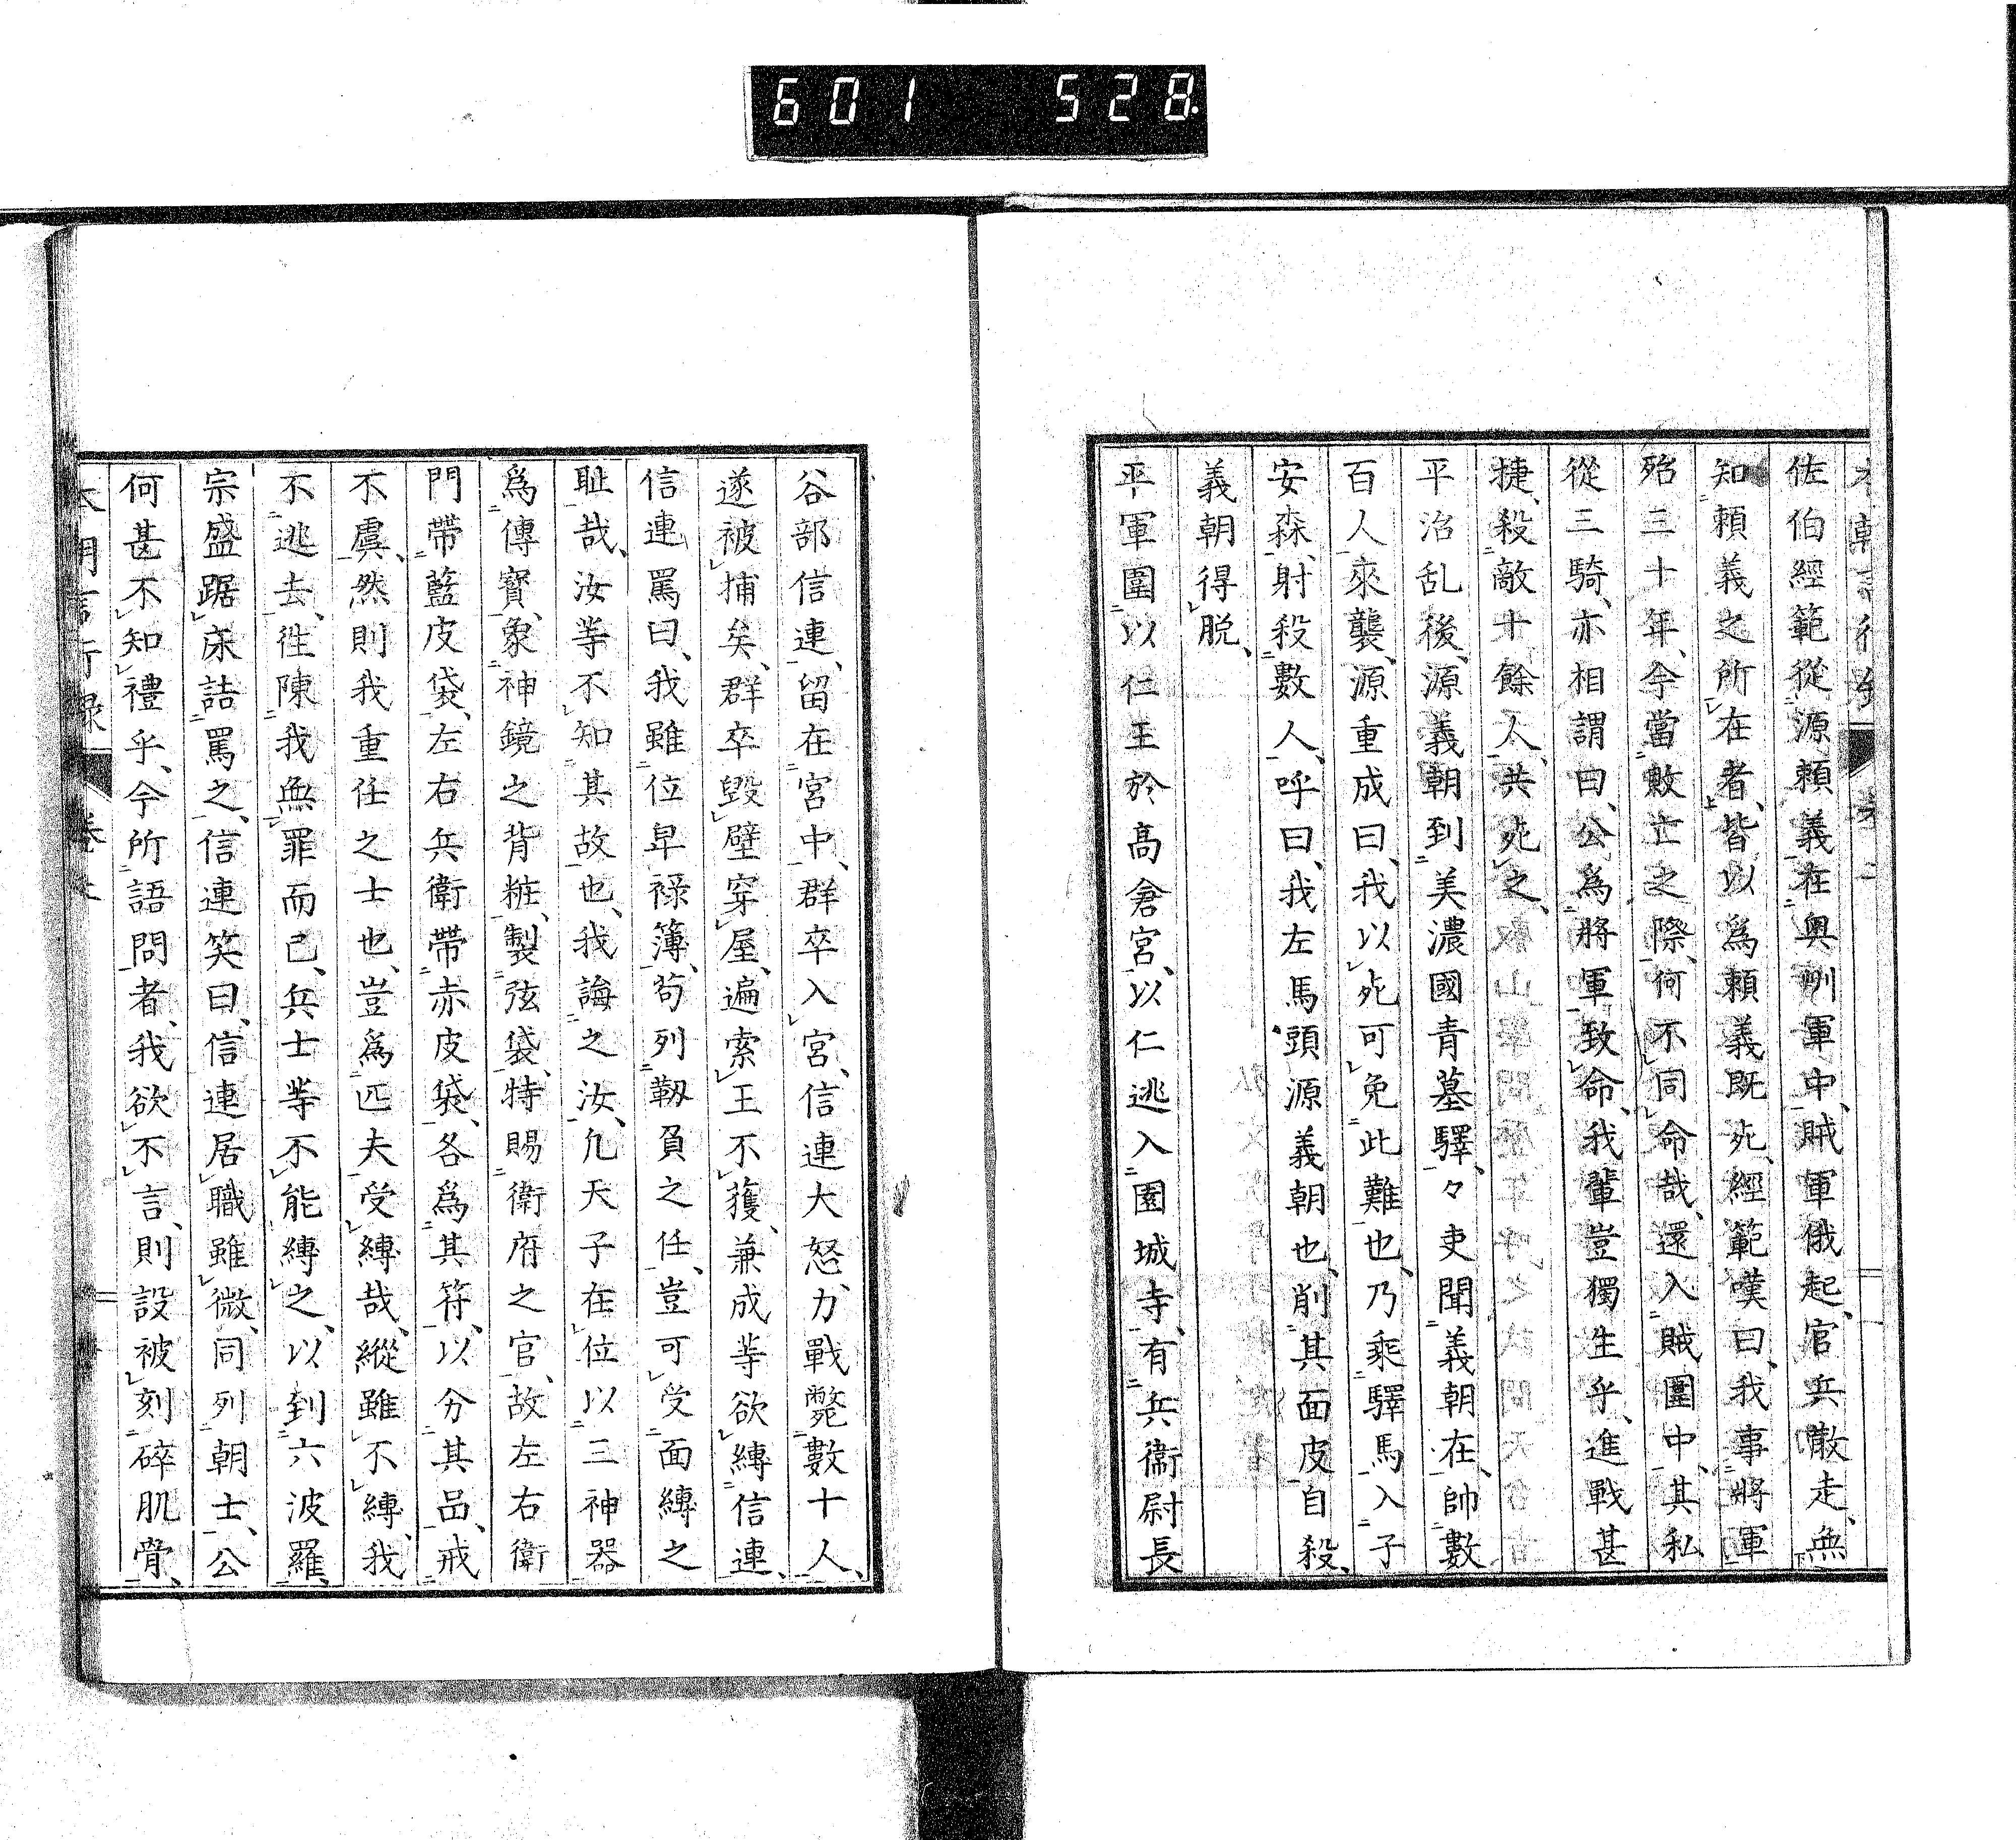 601 528
佐伯經範從源頼義在奥州軍中、賊軍俄起、官兵散走、無
知頼義之所在者、皆以爲頼義既死、經範嘆曰、我事將軍
殆三十年、今當敗亡之際、何不同命哉、還入賊圍中、其私
從三騎、亦相謂曰、公爲將軍致命、我輩豈獨生乎、進戰甚
捷、殺敵十餘人、共死之、
平治乱後、源義朝到美濃國青墓驛、々吏聞義朝在、帥數
百人來襲、源重成曰、我以死可免此難也、乃乘驛馬入子
安森、射殺數人、呼曰、我左馬頭源義朝也、削其面皮自殺、
義朝得脱、
平軍圍以仁王於高倉宮、以仁逃入園城寺、有兵衞尉長
谷部信連、留在宮中、群卒入宮、信連大怒、力戰斃數十人、
遂被捕矣、群卒毀壁穿屋、遍索王不獲、兼成等欲縛信連、
信連罵曰、我雖位卑禄簿、苟列靱負之任、豈可受面縛之
耻哉、汝等不知其故也、我誨之汝、凢天子在位以三神器
爲傳寶、象神鏡之背粧、製弦袋、特賜衛府之官、故左右衛
門帶藍皮袋、左右兵衛帶赤皮袋、各爲其符、以分其品、戒
不虞、然則我重任之士也、豈爲匹夫受縛哉、縱雖不縛、我
不逃去、往陳我無罪而已、兵士等不能縛之、以到六波羅、
宗盛踞床詰罵之、信連笑曰、信連居職雖微、同列朝士、公
何甚不知禮乎、今所語問者、我欲不言、則設被刻碎肌骨、
本朝言行録 卷